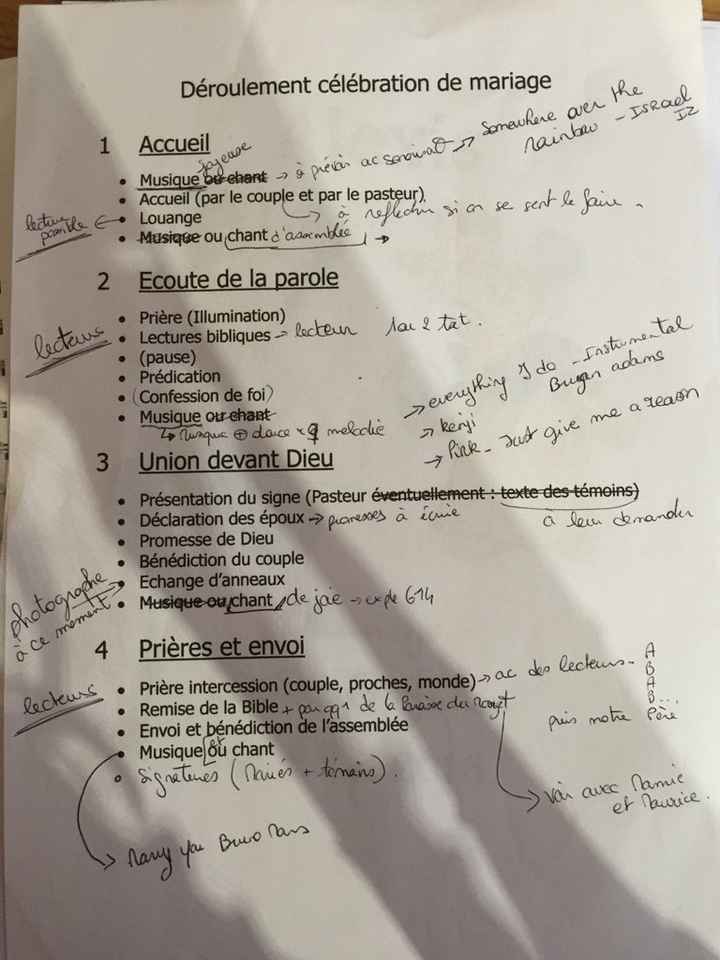 Déroulement célébration de mariage
1 Accueil
joyeuse
• Musique ou chant → à prévoir ac → Somewhere over the
rainbow - ISRAEL
IZ
• Accueil (par le couple et par le pasteur)
lecture possible ← • Louange → à reflechir si on se sent le faire.
• Musique ou chant d'assemblée →
2 Ecoute de la parole
• Prière (Illumination)
lecteurs • Lectures bibliques → lecteur 1 ou 2 txt.
• (pause)
• Prédication
• (Confession de foi)
• Musique ou chant
→ everything I do - Instrumental
Bryan adams
→ Kenji
→ Pink - Just give me a reason
↳ Musique ⊕ douce melodie
3 Union devant Dieu
• Présentation du signe (Pasteur éventuellement : texte des témoins)
à leur demander
• Déclaration des époux → promesses à écrire
• Promesse de Dieu
• Bénédiction du couple
photographe
à ce moment → • Echange d'anneaux
• Musique ou chant de joie → 614
4 Prières et envoi
lecteurs • Prière intercession (couple, proches, monde) → ac des lecteurs.
A
B
A
B...
puis notre Père
• Remise de la Bible + par qq1 de la Paroisse du
• Envoi et bénédiction de l'assemblée
• Musique ou chant
et
• Signatures (Mariés + témoins).
→ Voir avec Mamie
et Maurice.
→ Marry you Bruno Mars